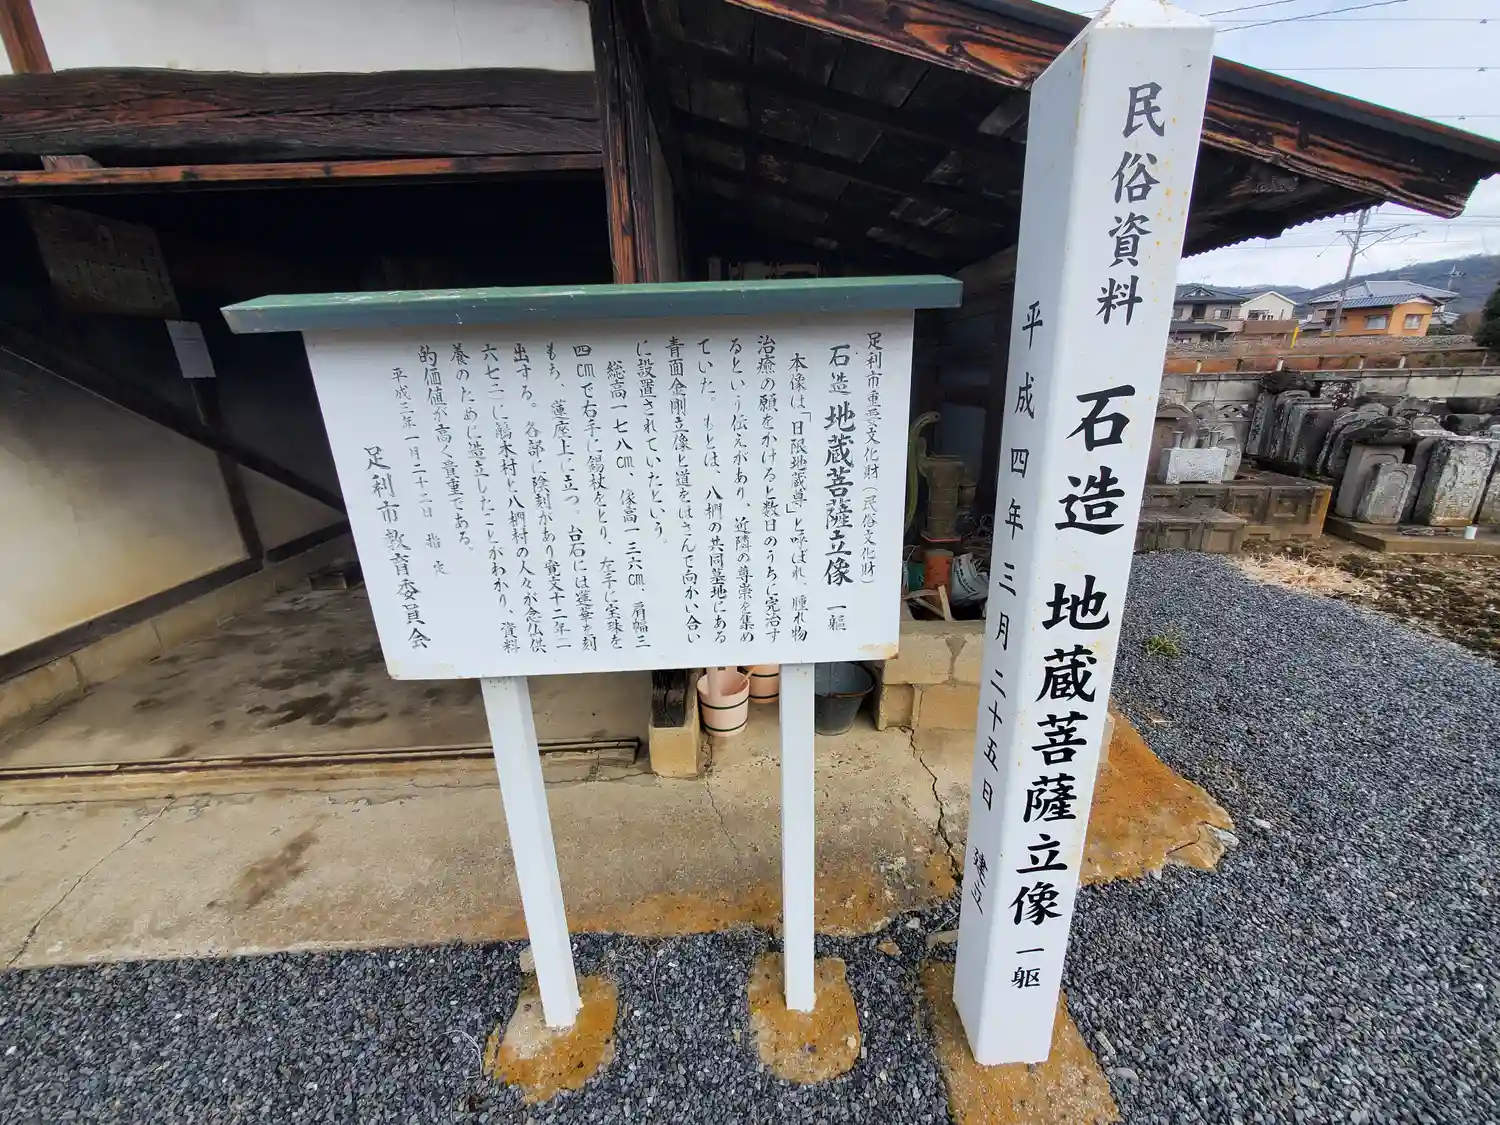 民俗資料
石造 地蔵菩薩立像 一躯
平成四年三月二十五日 建之
足利市重要文化財(民俗文化財)
石造 地蔵菩薩立像 一軀
本像は「日限地蔵尊」と呼ばれ、腫れ物
治癒の願をかけると数日のうちに完治す
るという伝えがあり、近隣の尊崇を集め
ていた。もとは、八椚の共同墓地にある
青面金剛立像と道をはさんで向かい合い
に設置されていたという。
総高一七八㎝、像高一三六㎝、肩幅三
四㎝で右手に錫杖をとり、左手に宝珠を
もち、蓮座上に立つ。台石には蓮華を刻
出する。各部に陰刻があり寛文十二年(一
六七二)に鵤木村と八椚村の人々が念仏供
養のために造立したことがわかり、資料
的価値が高く貴重である。
平成三年一月二十二日 指定
足利市教育委員会